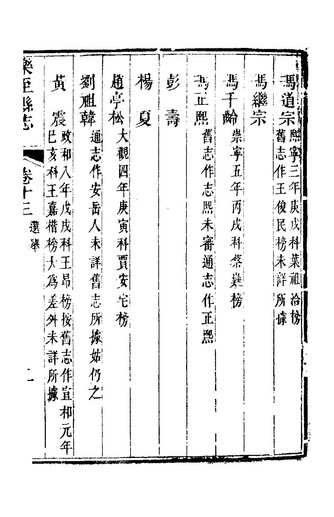 馮道宗熙寧三年庚戌科葉祖洽榜
舊志作王俊民榜未詳所據
馮繼宗
馮千齡崇寧五年丙戌科蔡薿榜
馮正熙舊志作志熙未審通志作正熙
彭壽
楊夏
趙亭松大觀四年庚寅科賈安宅榜
劉祖韓通志作安岳人未詳舊志所據姑仍之
黃震政和八年戊戌科王昂榜按舊志作宣和元年
己亥科王嘉楷榜大為差舛未詳所據
樂至縣志
卷十三 選舉
二